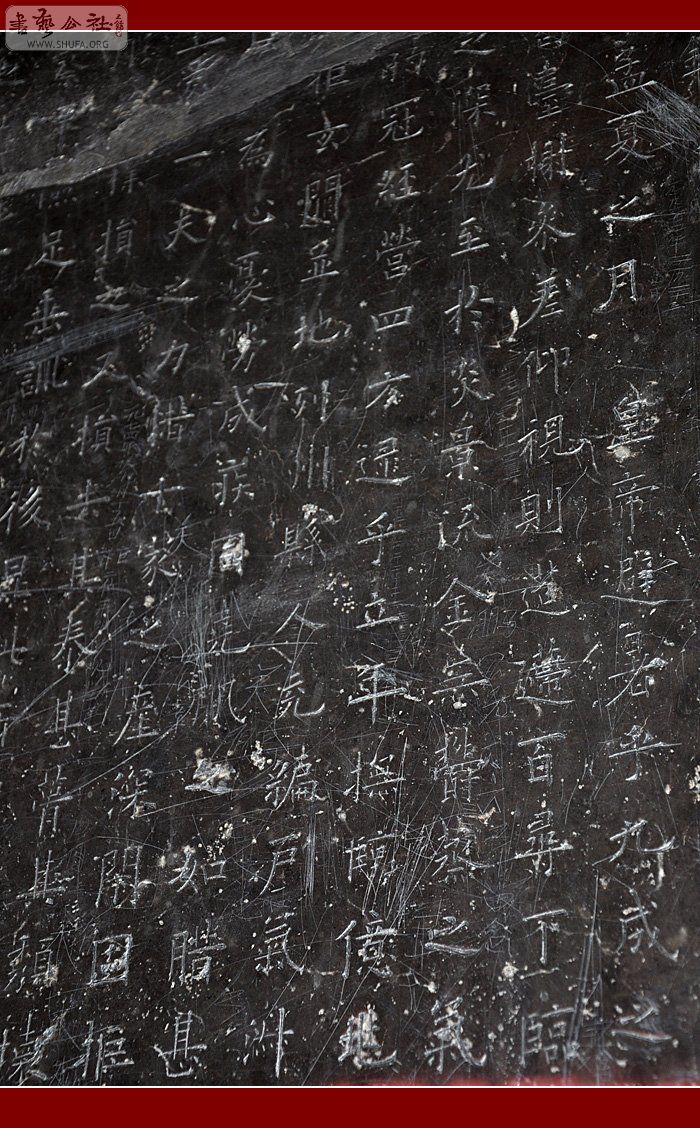 孟夏之月 皇帝避暑乎九成之
臺榭參差仰視則迢遰百尋下臨
深尤至於炎景流金無鬱蒸之氣
弱冠經營四方逮乎立年撫臨億兆
拒玄闕並地列州縣人充編戶氣淑
為心憂勞成疾同堯肌之如腊甚
一夫之力惜十家之產深閉固拒
損之又損去其泰甚葺其頹壞
足垂訓於後昆此
書藝公社
WWW.SHUFA.ORG